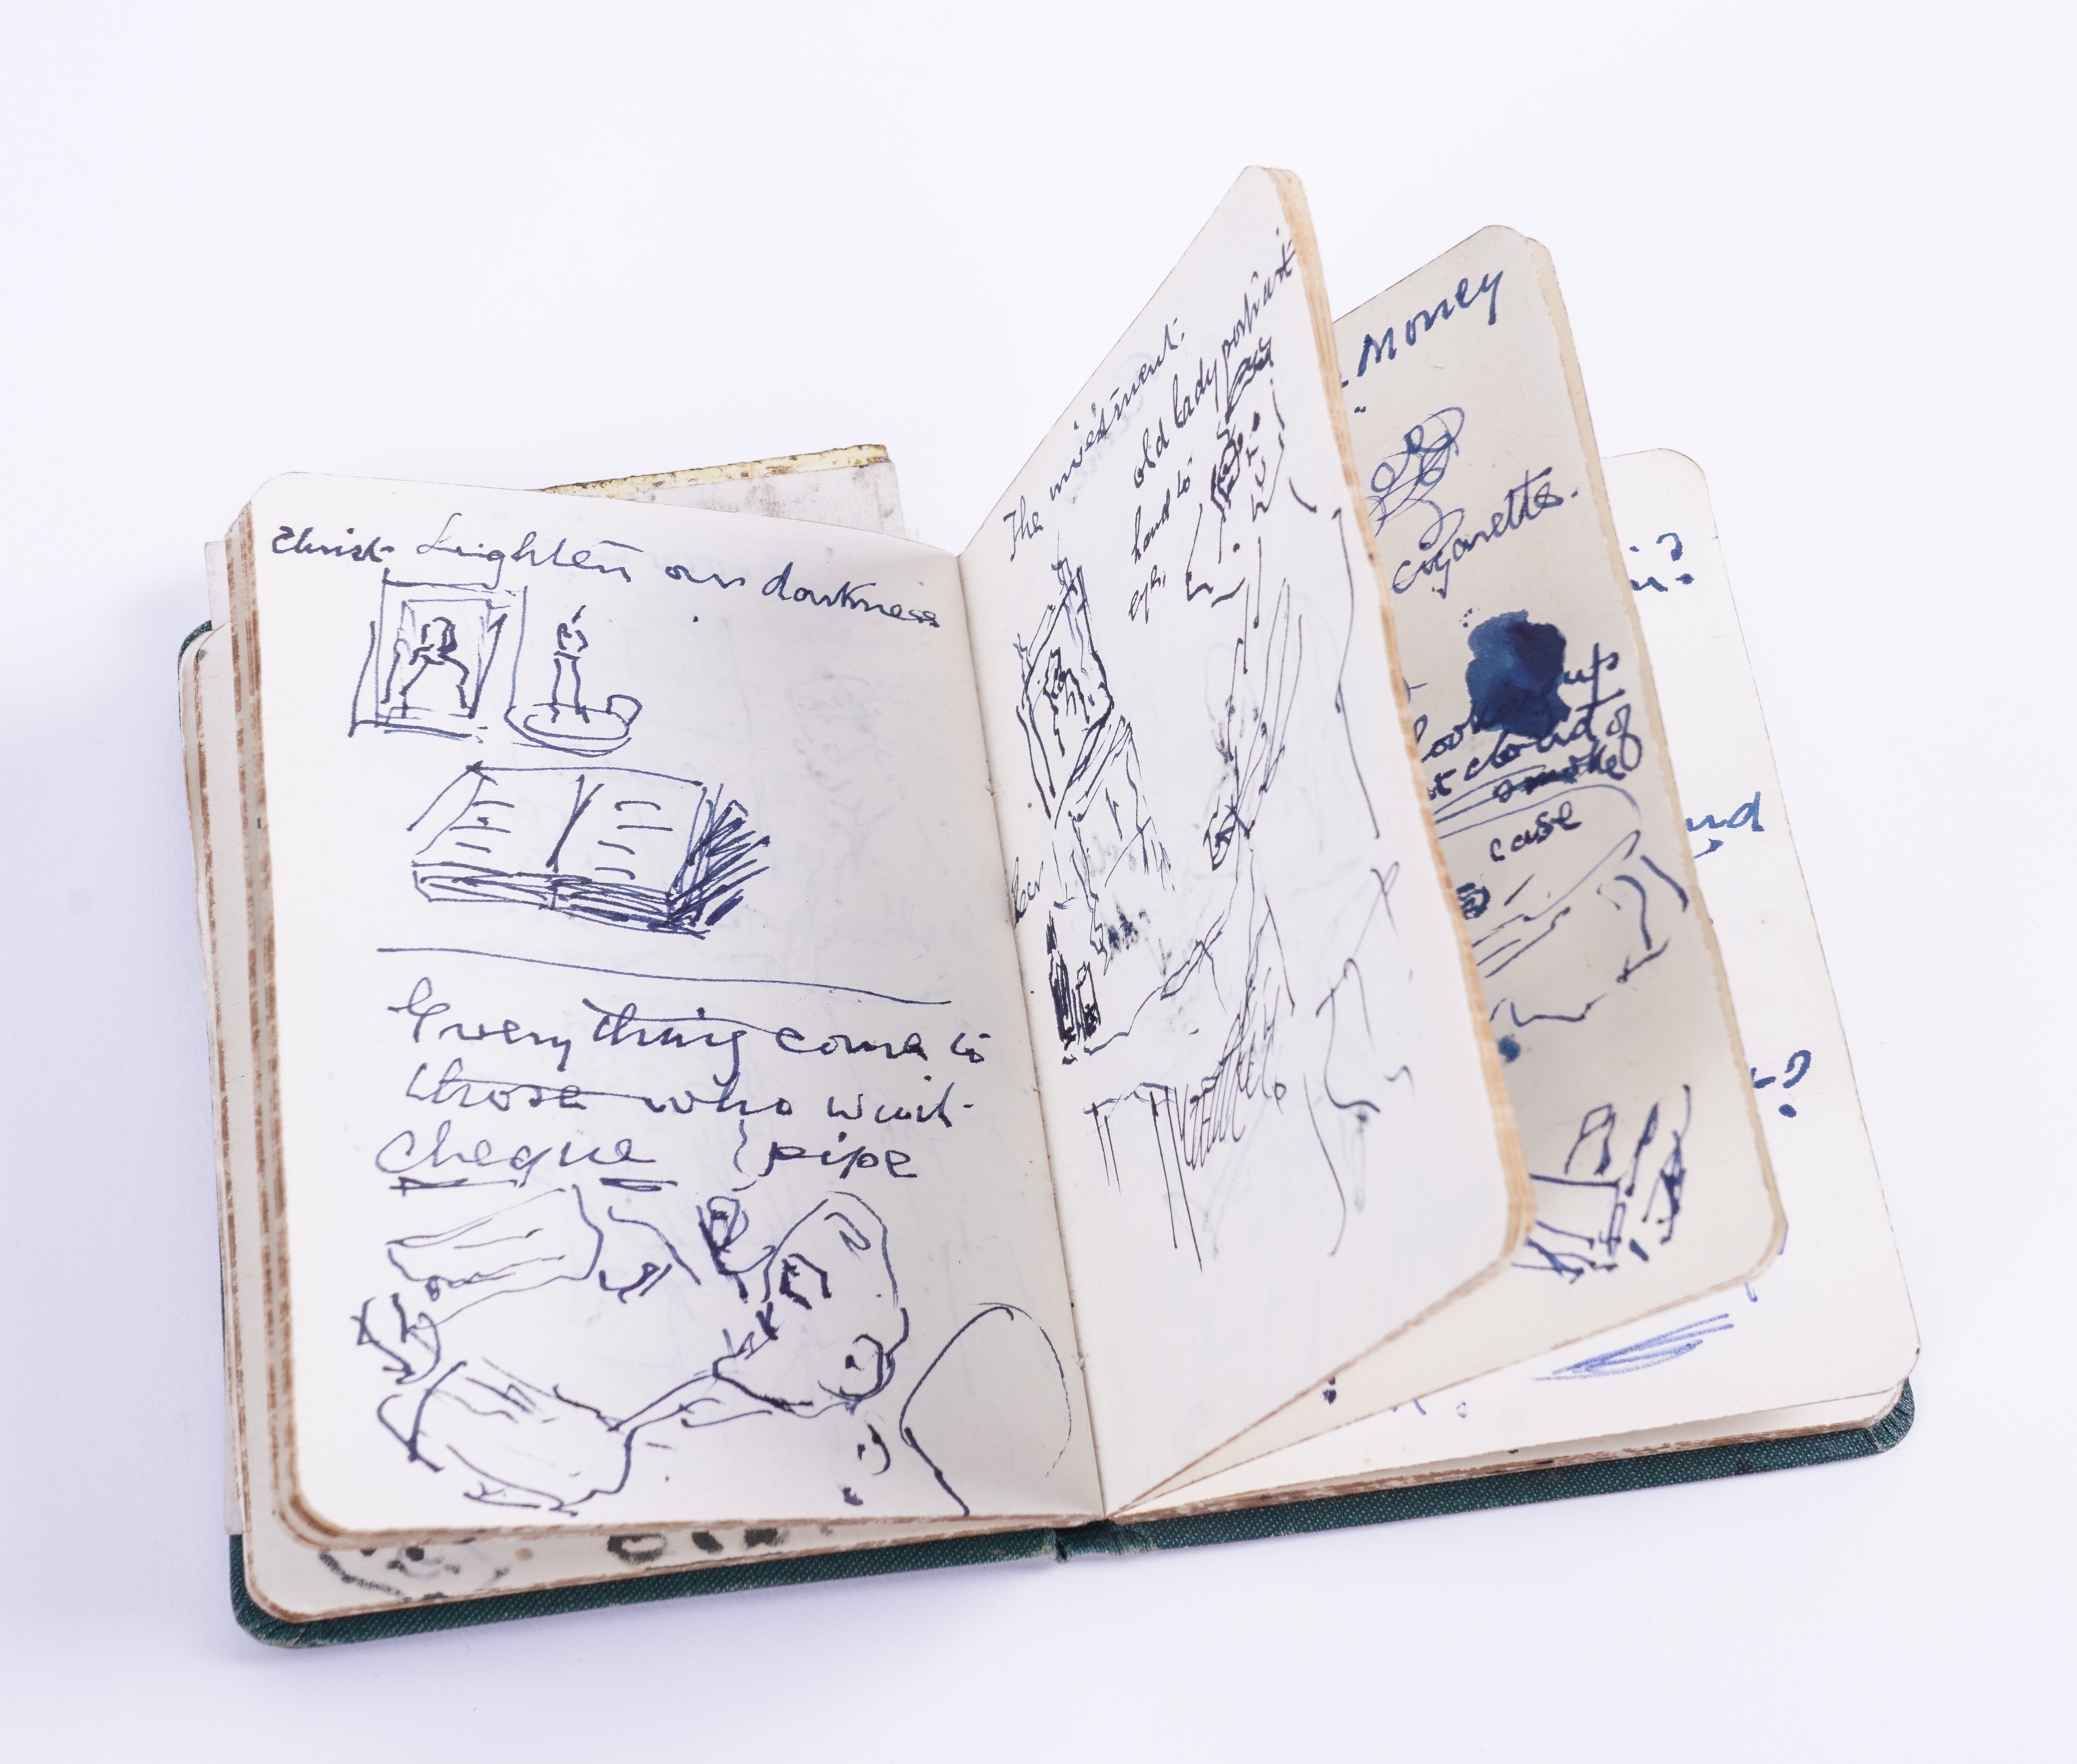 Christ Lighten our darkness
Everything come to
those who wait
cheque pipe
The investment.
old lady portrait
hand to
eye.
Money
cigarettes.
look up
cloud of
smoke
case